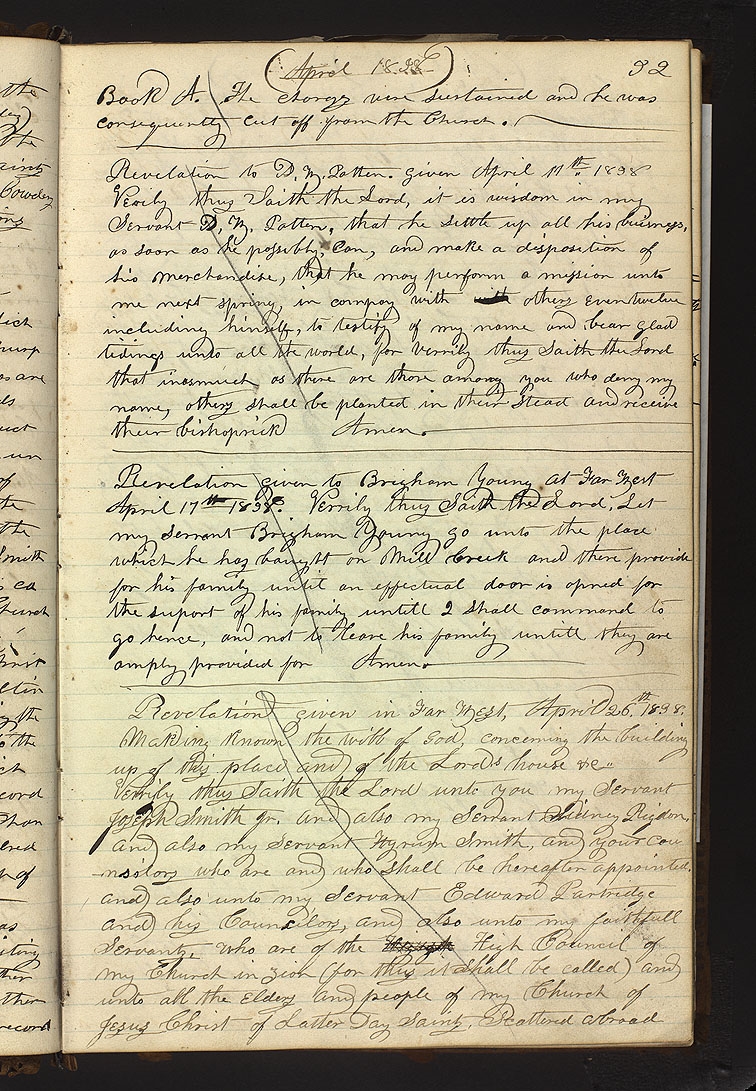 April 1838
32
Book A. The charges were sustained and he was
consequently cut off from the Church.
Revelation to D. W. Patten. given April 11th. 1838
Verily thus Saith the Lord, it is wisdom in my
Servant D, W, Patten, that he settle up all his buisness,
as soon as he possibly, Can, and make a disposition of
his merchandise, that he may perform a mission unto
me next spring, in compay with others even twelve
including himself, to testify of my name and bear glad
tidings unto all the world, for verrily thus Saith the Lord
that inasmuch as there are those among you who deny my
name, others shall be planted in their stead and receive
their bishoprick Amen.
Revelation given to Brigham Young at Far West
April 17th 1838. Verrily thus Saith the Lord, Let
my Servant Brigham Young go unto the place
which he has baught on Mill Creek and there provide
for his family until an effectual door is opned for
the suport of his family untill I shall command to
go hence, and not to leave his family untill they are
amply provided for Amen.
Revelation given in Far West, April 26th, 1838,
Making known the will of God, concerning the building
up of this place and of the Lord's house &c.
Verrily thus Saith the Lord unto you my Servant
Joseph Smith Jr. and also my Servant Sidney Rigdon,
and also my Servant Hyrum Smith, and your cou
-nsilors who are and who shall be hereafter appointed,
and also unto my Servant Edward Partridge
and his Councilors, and also unto my faithfull
Servants, who are of the High Council of
my Church in Zion (for thus it shall be called) and
unto all the Elders and people of my Church of
Jesus Christ of Latter Day Saints, Scattered abroad
the
Saints
Cowdery
Smith
Church
of
the
record
as
record